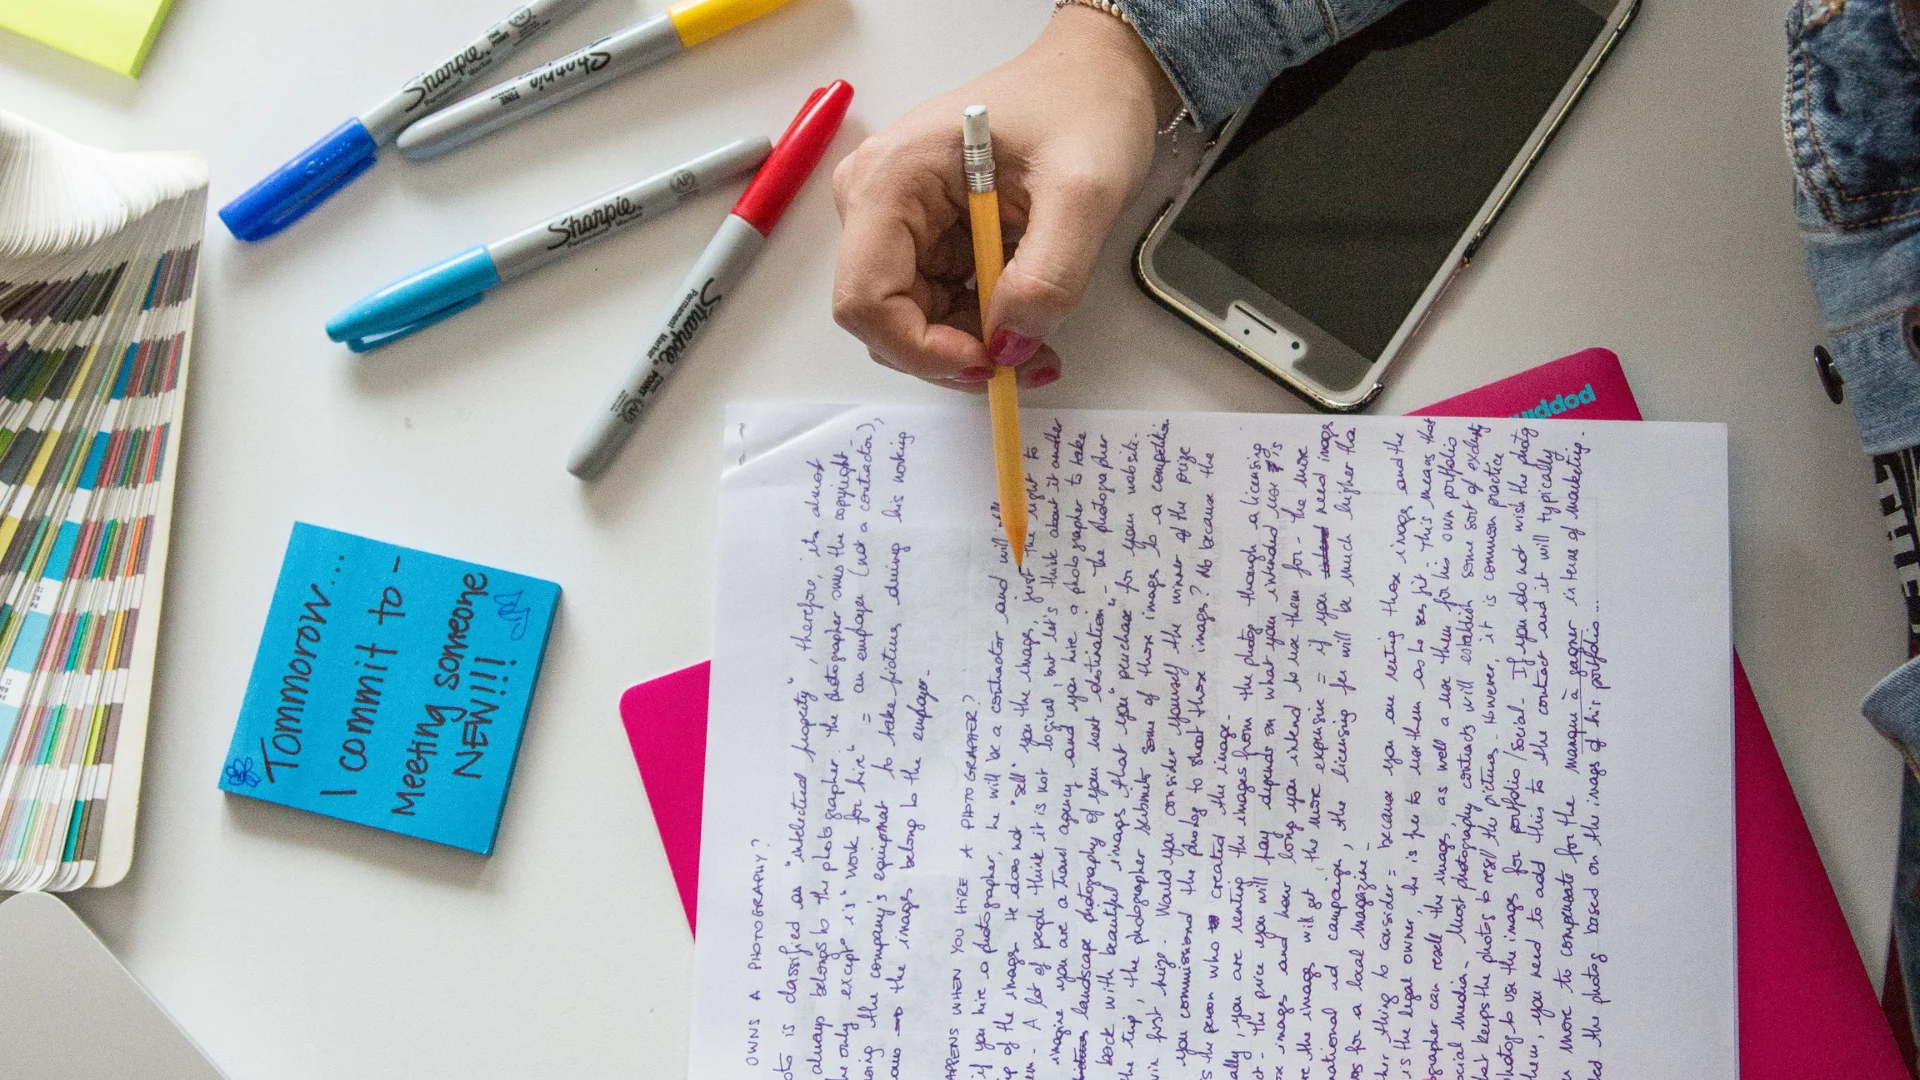 Sharpie
Permanent Marker
Sharpie
FINE
Sharpie
Permanent Marker
AP
Sharpie
Permanent Marker
FINE POINT
Tommorow...
I commit to -
Meeting someone
NEW!!!
OWNS A PHOTOGRAPHY?
is classified as "intellectual property", therefore, it's almost
always belongs to the photographer. The photographer owns the copyright -
the only except° is "work for hire" = an employee (not a contractor),
using the company's equipment to take pictures during his working
the images belong to the employer.
WHEN YOU HIRE A PHOTOGRAPHER?
if you hire a photographer, he will be a contractor and will
of the image. He does not "sell" you the image, just the right to
A lot of people think it is not logical, but let's think about it another
imagine you are a travel agency and you hire a photographer to take
landscape photography of your next destination - the photographer
back with beautiful images, that you "purchase" for your website.
the trip, the photographer submits some of those images to a competition
win first prize. Would you consider yourself the winner of the prize
you commissioned the photog to shoot those images? No because the
is the person who created the image.
you are renting the images from the photog through a licensing
the price you will pay depends on what you intended use is
images and how long you intend to use them for - the more
the images will get, the more expensive = if you need images
national ad campaign, the licensing fee will be much higher
for a local magazine -
thing to consider = because you are renting those images and the
is the legal owner, he is free to use them as he sees fit - This means that
can resell the images, as well as use them for his own portfolio
social media - Most photography contracts will establish some sort of
that keeps the photog to resell the pictures - However it is common practice
photog to use the images for portfolio/social. If you do not wish the photog
you need to add this to the contract and it will typically
more to compensate for the manque à gagner in terms of marketing.
the photog based on the images of his portfolio...